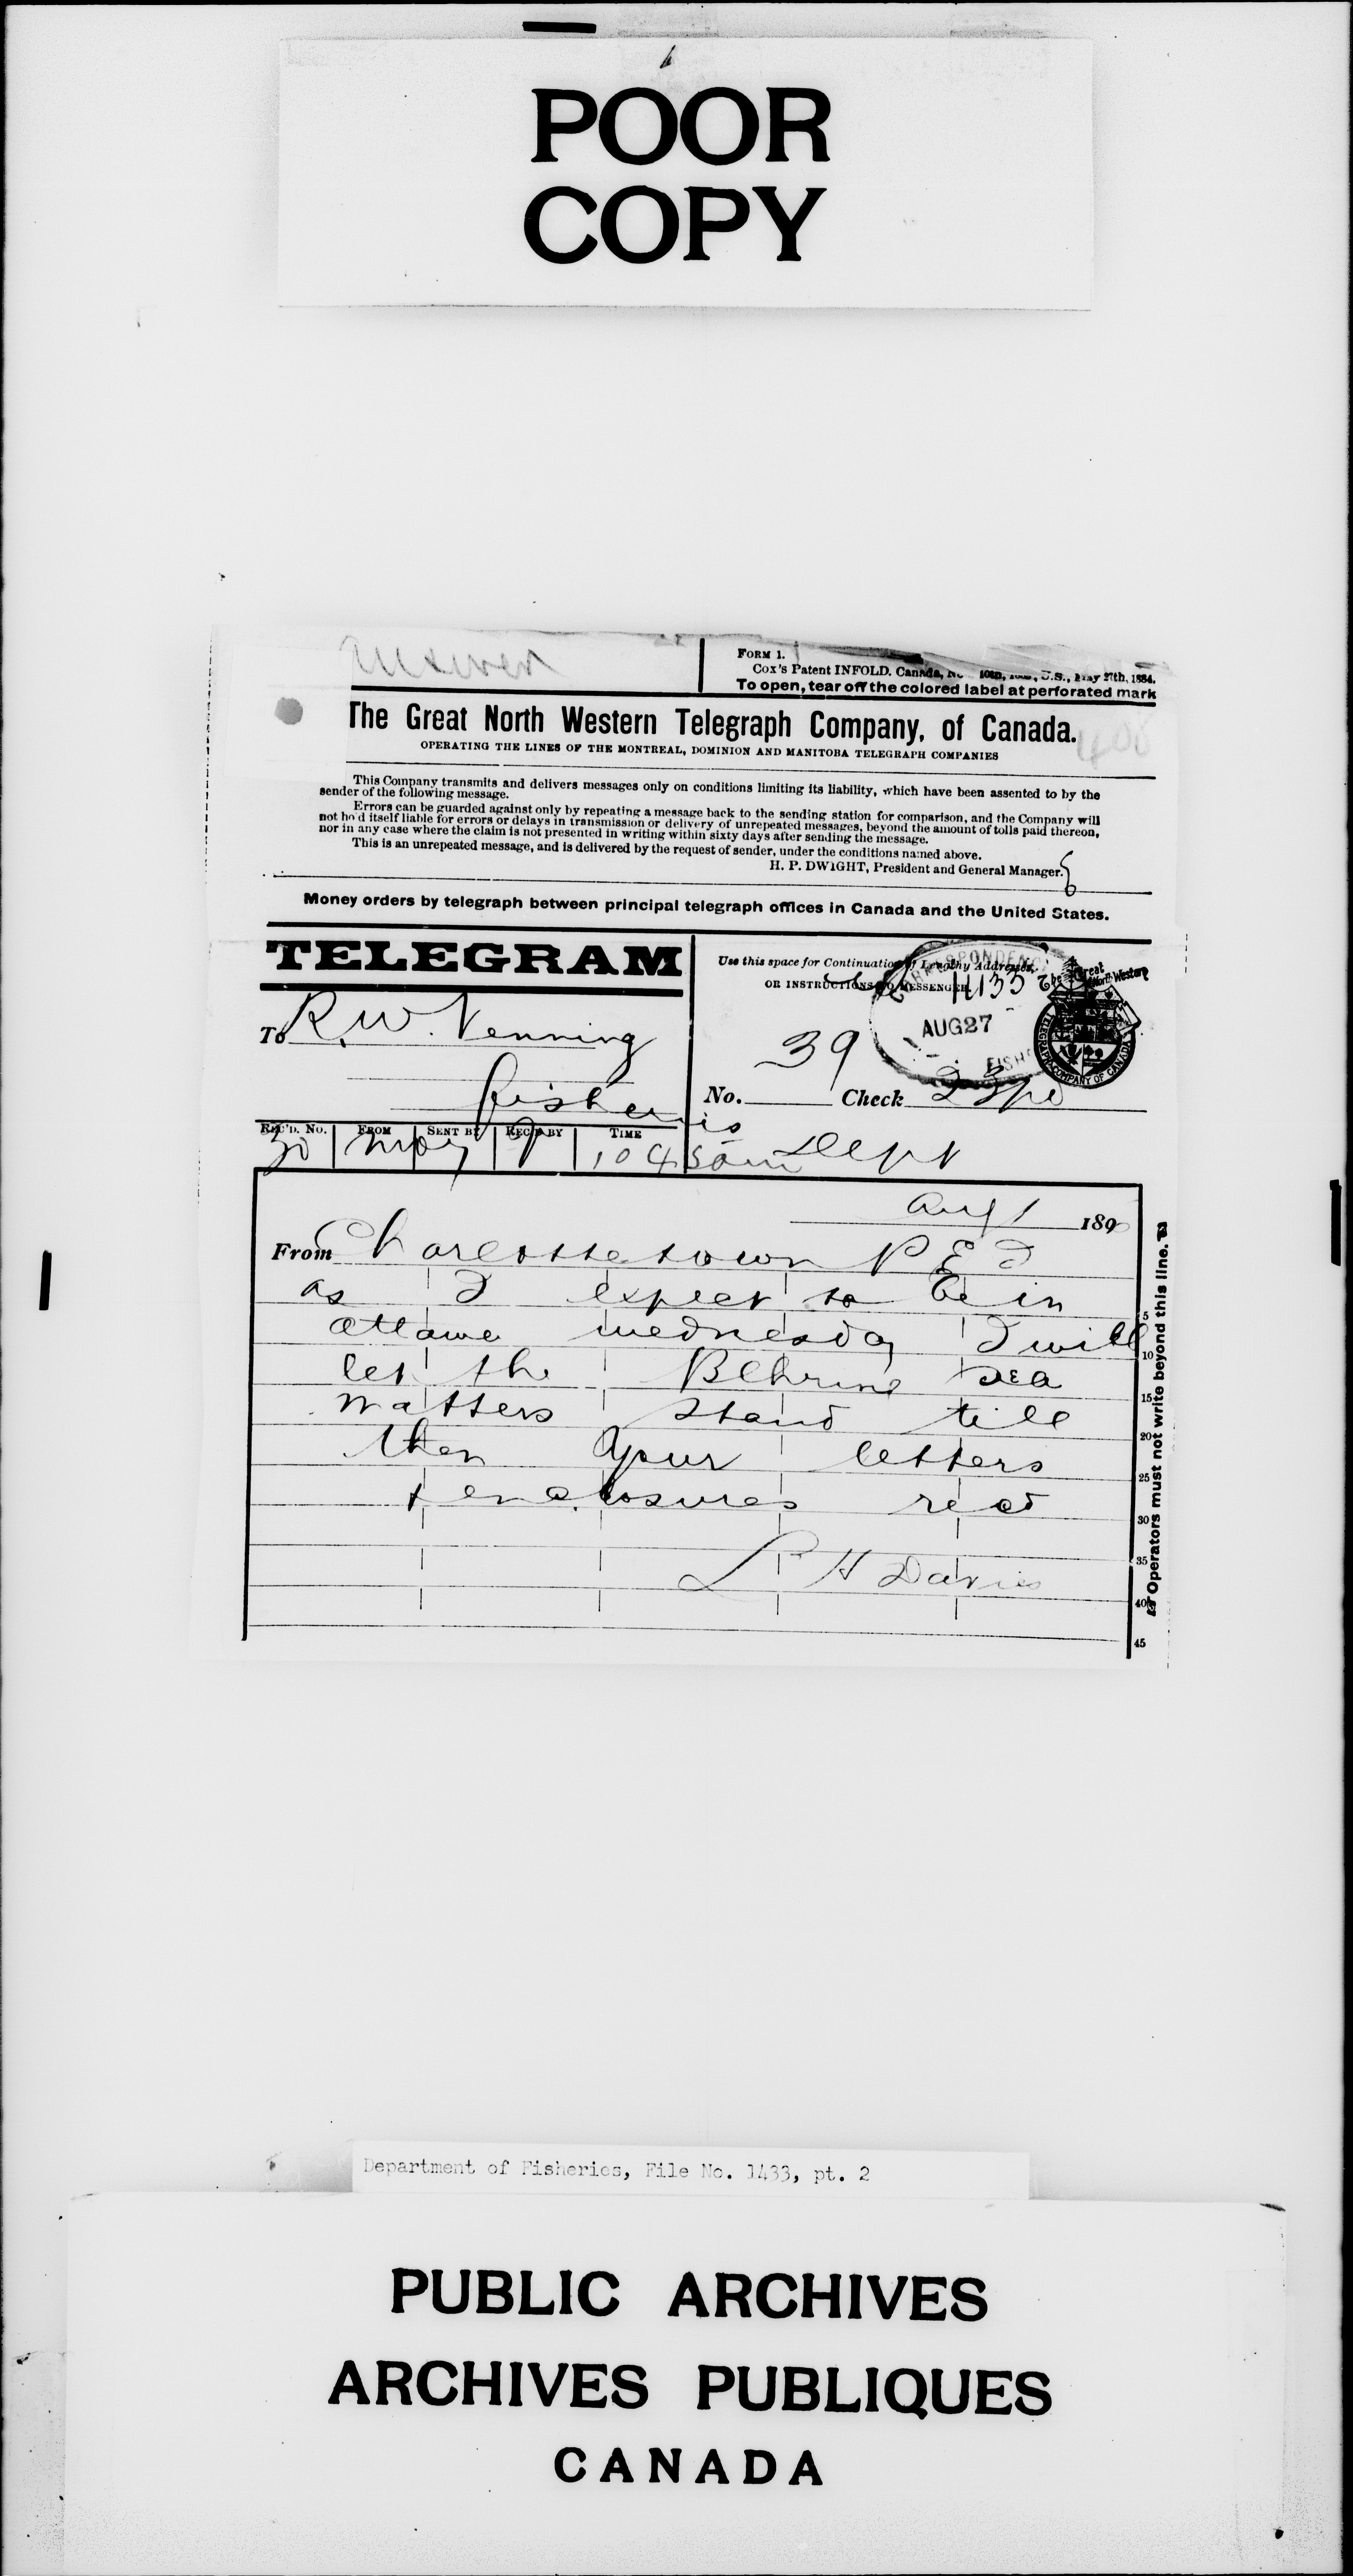 POOR
COPY
Answer
FORM 1.
Cox's Patent INFOLD. Canada, U.S., May 27th, 1884.
To open, tear off the colored label at perforated mark
The Great North Western Telegraph Company, of Canada.
OPERATING THE LINES OF THE MONTREAL, DOMINION AND MANITOBA TELEGRAPH COMPANIES
This Company transmits and delivers messages only on conditions limiting its liability, which have been assented to by the
sender of the following message.
Errors can be guarded against only by repeating a message back to the sending station for comparison, and the Company will
not hold itself liable for errors or delays in transmission or delivery of unrepeated messages, beyond the amount of tolls paid thereon,
nor in any case where the claim is not presented in writing within sixty days after sending the message.
This is an unrepeated message, and is delivered by the request of sender, under the conditions named above.
H. P. DWIGHT, President and General Manager.
Money orders by telegraph between principal telegraph offices in Canada and the United States.
TELEGRAM
Use this space for Continuation of Lengthy Addresses,
OR INSTRUCTIONS TO MESSENGER
AUG 27
The Great North Western
TELEGRAPH COMPANY OF CANADA
To R. W. Venning
Fisheries
Dept
39
No. Check 23 pd
REC'D. No. FROM SENT BY REC'D BY TIME
30 1045am
Aug 1 189
From Charlottetown P E I
as I expect to be in
Ottawa Wednesday I will
let the Behring Sea
matters stand till
then your letters
& enclosures recd
L H Davies
5
10
15
20
25
30
35
40
45
Operators must not write beyond this line.
Department of Fisheries, File No. 1433, pt. 2
PUBLIC ARCHIVES
ARCHIVES PUBLIQUES
CANADA